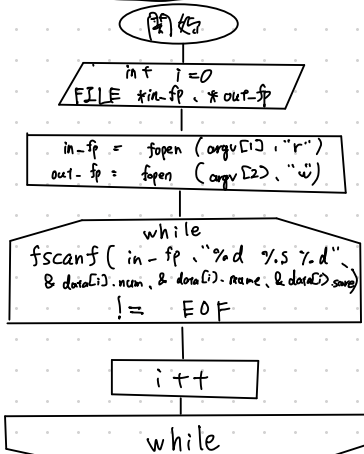 開始
int i=0
FILE *in_fp、*out_fp
in_fp = fopen (argv[1]、"r")
out_fp = fopen (argv[2]、"w")
while
fscanf( in_fp、"%d %s %d"、
& data[i].num、& data[i].name、& data[i].
!= EOF
i++
while